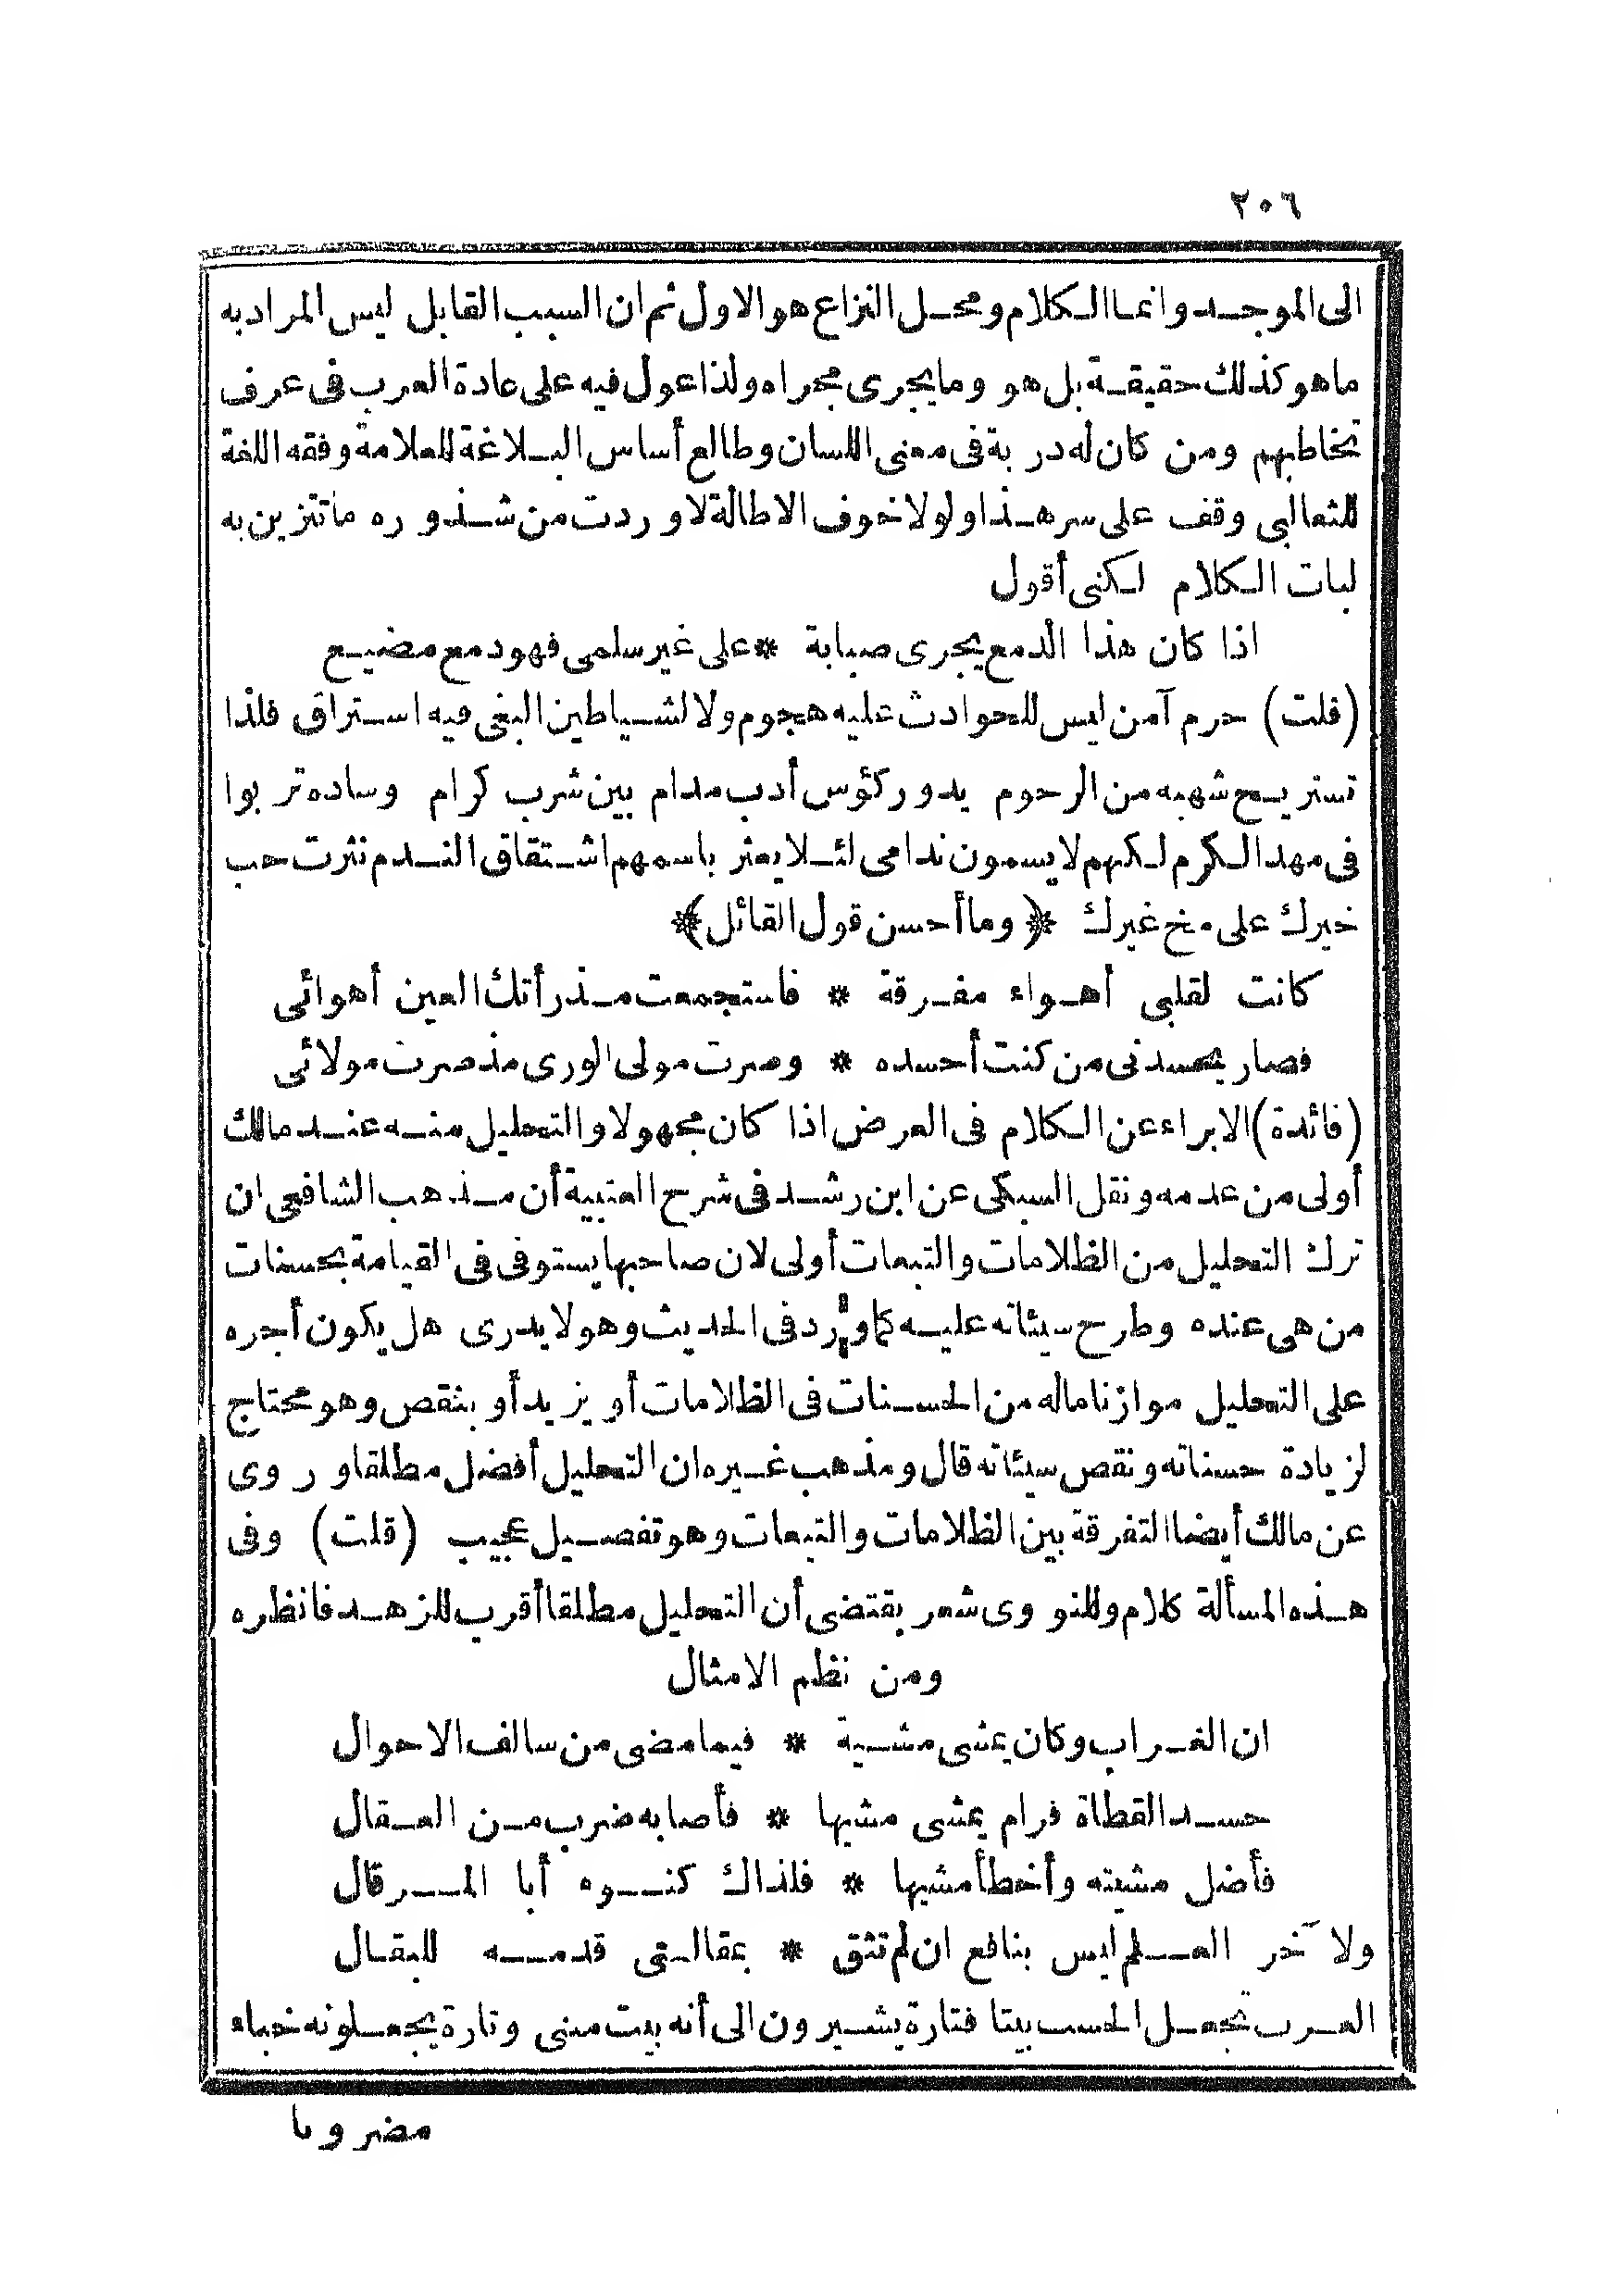 ٢٠٦
الى الموجد وانما الكلام ومحل النزاع هو الاول ثم ان السبب القابل ليس المراد به
ما هو كذلك حقيقة بل هو وما يجرى مجراه ولذا عول فيه على عادة العرب فى عرف
تخاطبهم ومن كان له دربة فى معنى اللسان وطالع أساس البلاغة للعلامة وفقه اللغة
للثعالبى وقف على سر هذا ولولا خوف الاطالة لاوردت من شذوره ما تتزين به
لبات الكلام لكنى أقول
اذا كان هذا الدمع يجرى صبابة * على غير سلمى فهو دمع مضيع
(قلت) حرم آمن ليس للحوادث عليه هجوم ولا لشياطين البغى فيه استراق فلذا
تستريح شهبه من الرجوم يدور كؤس أدب مدام بين شرب كرام وساده تربوا
فى مهد الكرم لكنهم لا يسمون ندامى لئلا يعثر باسمهم اشتقاق الندم نثرت حب
خيرك على فخ غيرك ﴿وما أحسن قول القائل﴾
كانت لقلبى أهواء مفرقة * فاستجمعت مذ رأتك العين أهوائى
فصار يحسدنى من كنت أحسده * وصرت مولى الورى مذ صرت مولائى
(فائدة) الابراء عن الكلام فى العرض اذا كان مجهولا والتحليل منه عند مالك
أولى من عدمه ونقل السبكى عن ابن رشد فى شرح العتبية أن مذهب الشافعى ان
ترك التحليل من الظلامات والتبعات أولى لان صاحبها يستوفى فى القيامة بحسنات
من هى عنده وطرح سيئاته عليه كما ورد فى الحديث وهو لا يدرى هل يكون أجره
على التحليل موازنا ماله من الحسنات فى الظلامات أو يزيد أو ينقص وهو محتاج
لزيادة حسناته ونقص سيئاته قال ومذهب غيره ان التحليل أفضل مطلقا وروى
عن مالك أيضا التفرقة بين الظلامات والتبعات وهو تفصيل عجيب (قلت) وفى
هذه المسألة كلام وللنووى شعر يقتضى أن التحليل مطلقا أقرب للزهد فانظره
ومن نظم الامثال
ان الغراب وكان يمشى مشية * فيما مضى من سالف الاحوال
حسد القطاة فرام يمشى مشيها * فأصابه ضرب من العقال
فأضل مشيته وأخطأ مشيها * فلذاك كنوه أبا المرقال
ولآخر العلم ليس بنافع ان لم تثق * بمقالتى قدمه للبقال
العرب تجعل الحسب بيتا فتارة يشيرون الى أنه بيت مبنى وتارة يجعلونه خباء
مضروبا